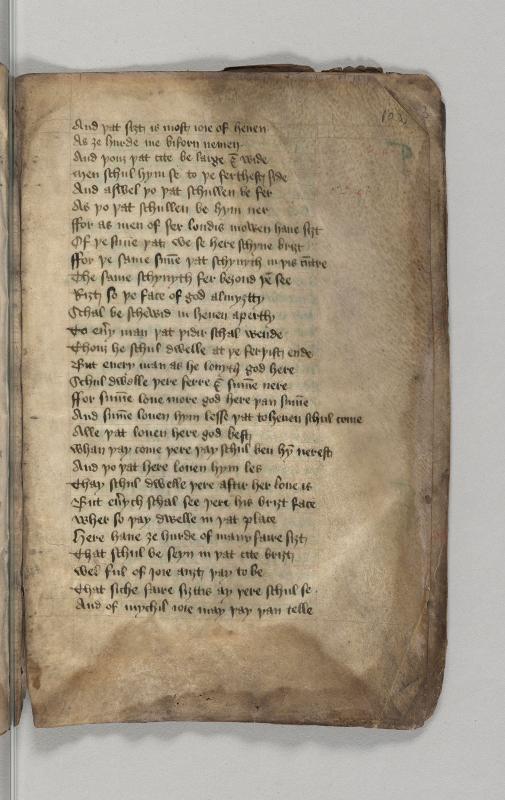 And þat siȝt is most ioie of heuen
As ȝe hurde me biforn nemen
And þouȝ þat cite be large & wide
men schul hym se to þe ferthest side
And aswel þo þat schullen be fer
As þo þat schullen be hym ner
ffor as men of fer londis mowen haue siȝt
Of þe sūne þat we se here schyne briȝt
ffor þe same sūne þat schynyth in þis cūtre
The same schynyth fer beȝond þe see
Riȝt so þe face of god almyȝtty
Schal be schewid in heuen aperth
To eu̅y man þat þidir schal wende
Thouȝ he schul dwelle at þe ferþist ende
But euery man as he louyth god here
Schul dwelle þere ferre & sūme nere
ffor sūme loue more god here þan sūme
And sūme louen hym lesse þat to heuen schul come
Alle þat louen here god best
whan þay come þere þay schul ben hȳ nerest
And þo þat here louen hym les
Thay schul dwelle þere aftir her loue is
But eu̅ych schal see þere his briȝt face
Wher so þay dwelle in þat place
Here haue ȝe hurde of many faire siȝt
That schul be seyn in þat cite briȝt
Wel ful of ioie auȝt þay to be
That siche faire siȝttis ay þere schul se
And of mychil ioie may þay þan telle